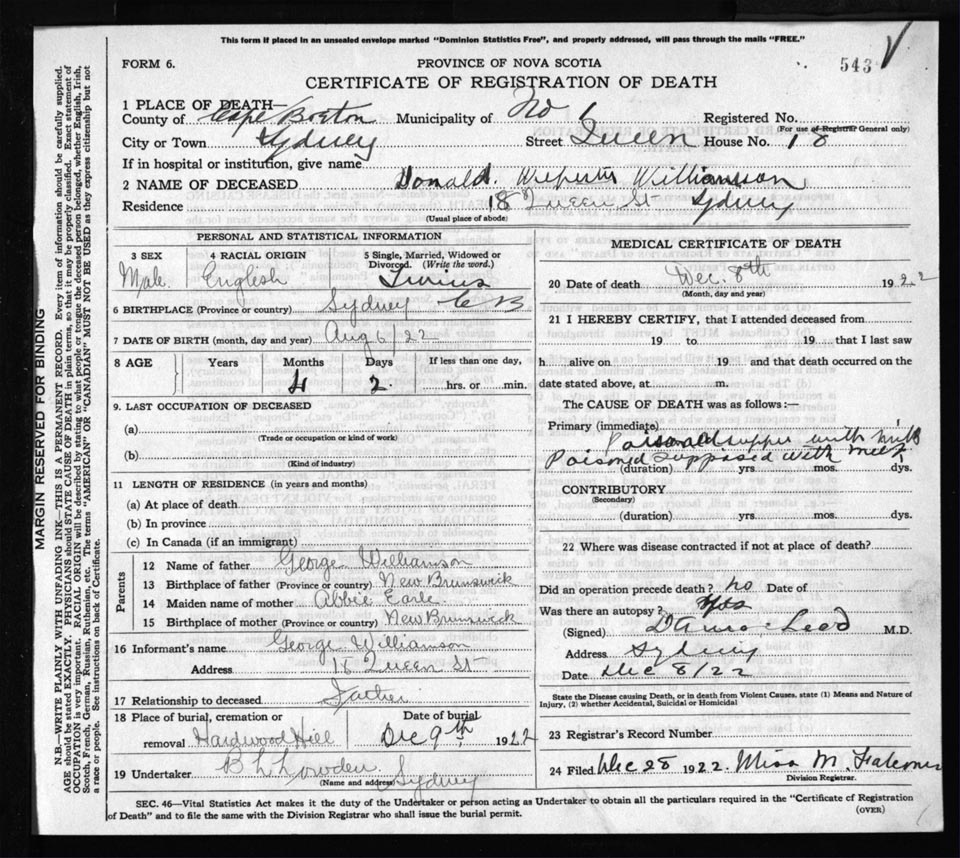 This form if placed in an unsealed envelope marked "Dominion Statistics Free", and properly addressed, will pass through the mails "FREE."
FORM 6.
PROVINCE OF NOVA SCOTIA
543
CERTIFICATE OF REGISTRATION OF DEATH
1 PLACE OF DEATH—
County of Cape Breton Municipality of No 6 Registered No.
(For use of Registrar General only)
City or Town Sydney Street Queen House No. 18
If in hospital or institution, give name
2 NAME OF DECEASED Donald Williamson
Residence 18 Queen St Sydney
(Usual place of abode)
PERSONAL AND STATISTICAL INFORMATION
3 SEX Male
4 RACIAL ORIGIN English
5 Single, Married, Widowed or Divorced. (Write the word.)
6 BIRTHPLACE (Province or country) Sydney C B
7 DATE OF BIRTH (month, day and year) Aug 6/22
8 AGE Years Months Days If less than one day,
4 2 hrs. or min.
9. LAST OCCUPATION OF DECEASED
(a)
(Trade or occupation or kind of work)
(b)
(Kind of industry)
11 LENGTH OF RESIDENCE (in years and months)
(a) At place of death
(b) In province
(c) In Canada (if an immigrant)
Parents
12 Name of father George Williamson
13 Birthplace of father (Province or country) New Brunswick
14 Maiden name of mother Abbie Earle
15 Birthplace of mother (Province or country) New Brunswick
16 Informant's name George Williamson
Address 18 Queen St
17 Relationship to deceased Father
18 Place of burial, cremation or removal Hardwood Hill
Date of burial Dec 9th 1922
19 Undertaker B L Lowden Sydney
(Name and address)
MEDICAL CERTIFICATE OF DEATH
20 Date of death Dec. 8th 1922
(Month, day and year)
21 I HEREBY CERTIFY, that I attended deceased from
19 to 19 that I last saw
h alive on 19 and that death occurred on the
date stated above, at m.
The CAUSE OF DEATH was as follows:—
Primary (immediate)
Poisoned supposed with milk
(duration) yrs. mos. dys.
CONTRIBUTORY
(Secondary)
(duration) yrs. mos. dys.
22 Where was disease contracted if not at place of death?
Did an operation precede death? no Date of
Was there an autopsy? Yes
(Signed) M.D.
Address Sydney
Date Dec 8/22
State the Disease causing Death, or in death from Violent Causes, state (1) Means and Nature of
Injury, (2) whether Accidental, Suicidal or Homicidal
23 Registrar's Record Number
24 Filed Dec 28 1922. Miss M. Falconer
Division Registrar.
SEC. 46—Vital Statistics Act makes it the duty of the Undertaker or person acting as Undertaker to obtain all the particulars required in the "Certificate of Registration
of Death" and to file the same with the Division Registrar who shall issue the burial permit.
(OVER)
MARGIN RESERVED FOR BINDING
N.B.—WRITE PLAINLY WITH UNFADING INK—THIS IS A PERMANENT RECORD. Every item of information should be carefully supplied.
AGE should be stated EXACTLY. PHYSICIANS should STATE CAUSE OF DEATH in plain terms, so that it may be properly classified. Exact statement of
OCCUPATION is very important. RACIAL ORIGIN will be described by stating to what people or tongue the deceased person belonged, whether English, Irish,
Scotch, French, German, Russian, Ruthenian, etc. The terms "AMERICAN" OR "CANADIAN" MUST NOT BE USED as they express citizenship but not
a race or people. See instructions on back of Certificate.